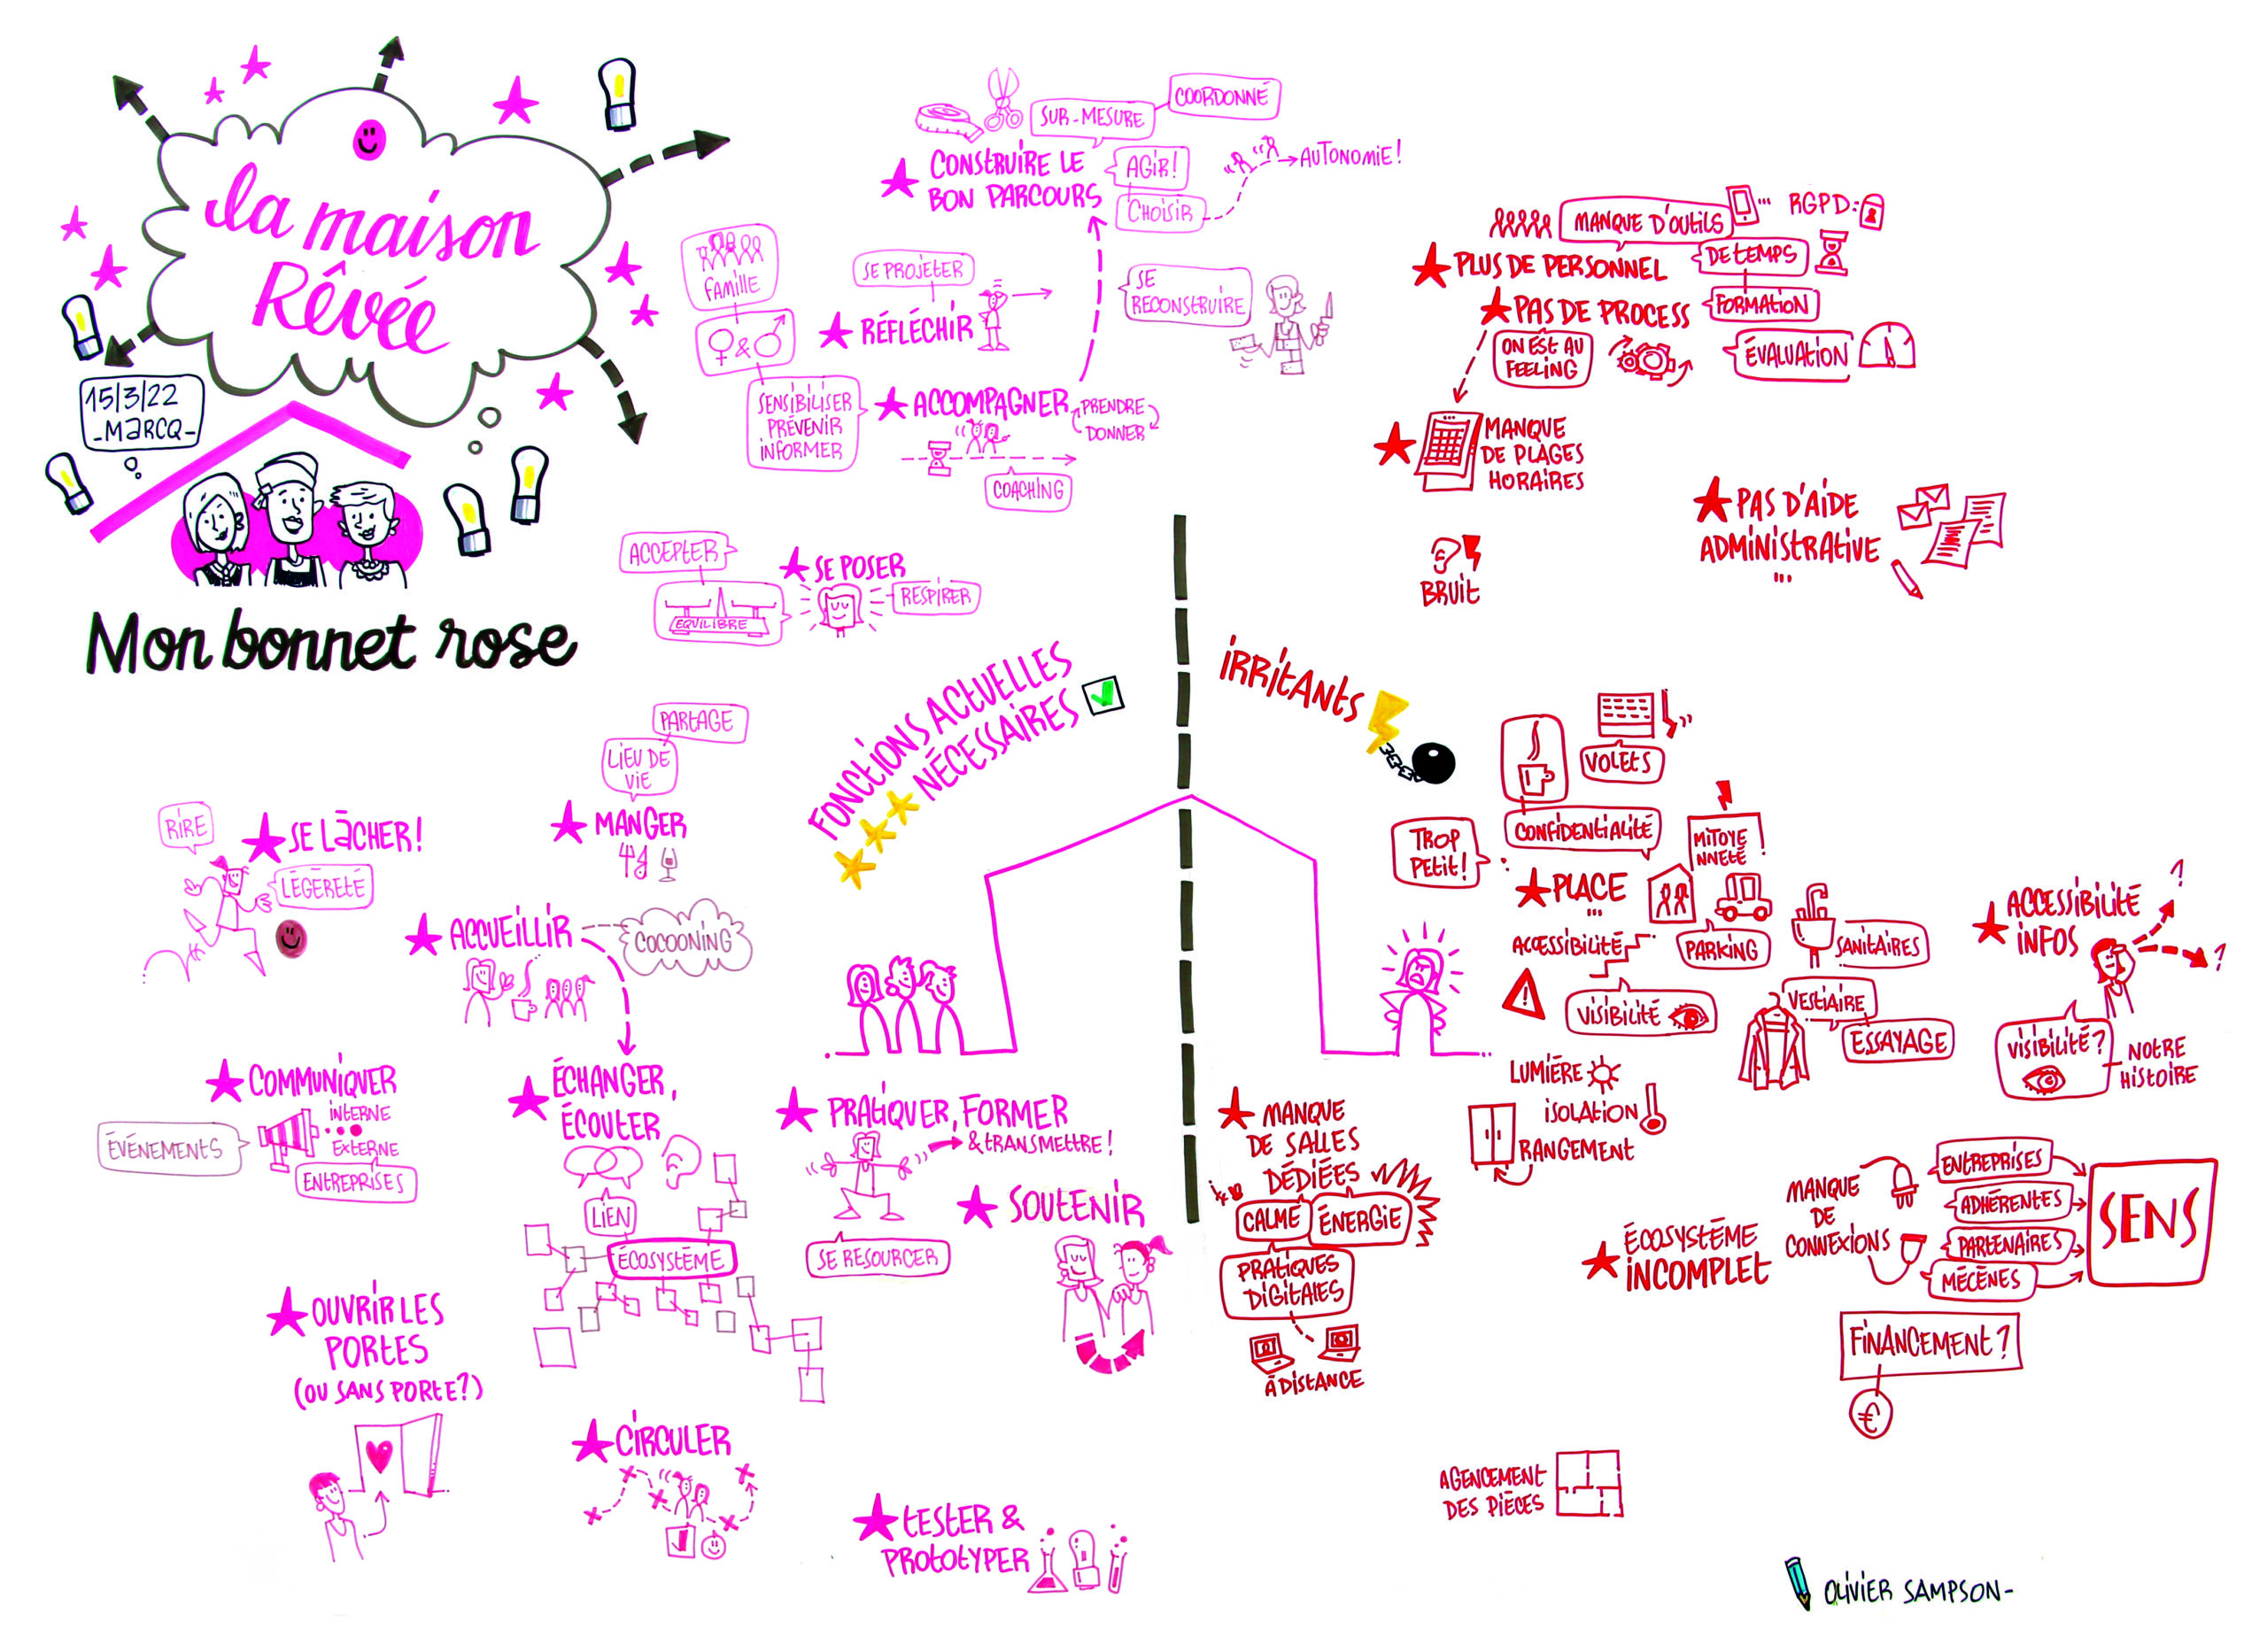 la maison
Rêvée
15/3/22
-MARCQ-
Mon bonnet rose
COORDONNÉ
SUR-MESURE
CONSTRUIRE LE
BON PARCOURS
AGIR!
CHOISIR
AUTONOMIE!
FAMILLE
SE PROJETER
RÉFLÉCHIR
SE
RECONSTRUIRE
SENSIBILISER
PRÉVENIR
INFORMER
ACCOMPAGNER
PRENDRE
DONNER
COACHING
ACCEPTER
SE POSER
RESPIRER
EQUILIBRE
FONCTIONS ACTUELLES
NÉCESSAIRES
PARTAGE
LIEU DE
VIE
MANGER
RIRE
SE LÂCHER!
LÉGÈRETÉ
ACCUEILLIR
COCOONING
COMMUNIQUER
INTERNE
EXTERNE
ÉVÉNEMENTS
ENTREPRISES
ÉCHANGER,
ÉCOUTER
LIEN
ÉCOSYSTÈME
PRATIQUER, FORMER
& TRANSMETTRE!
SE RESOURCER
SOUTENIR
OUVRIR LES
PORTES
(OU SANS PORTE?)
CIRCULER
TESTER &
PROTOTYPER
IRRITANTS
MANQUE D'OUTILS
RGPD:
PLUS DE PERSONNEL
DE TEMPS
PAS DE PROCESS
FORMATION
ON EST AU
FEELING
ÉVALUATION
MANQUE
DE PLAGES
HORAIRES
PAS D'AIDE
ADMINISTRATIVE
...
BRUIT
VOLETS
CONFIDENTIALITÉ
TROP
PETIT!
MITOYE
NNETÉ
!
PLACE
...
ACCESSIBILITÉ
PARKING
SANITAIRES
VISIBILITÉ
VESTIAIRE
ESSAYAGE
ACCESSIBILITÉ
INFOS
?
?
VISIBILITÉ?
NOTRE
HISTOIRE
LUMIÈRE
ISOLATION
RANGEMENT
MANQUE
DE SALLES
DÉDIÉES
CALME
ÉNERGIE
PRATIQUES
DIGITALES
À DISTANCE
ÉCOSYSTÈME
INCOMPLET
MANQUE
DE
CONNEXIONS
ENTREPRISES
ADHÉRENTES
PARTENAIRES
MÉCÈNES
SENS
FINANCEMENT?
€
AGENCEMENT
DES PIÈCES
OLIVIER SAMPSON-